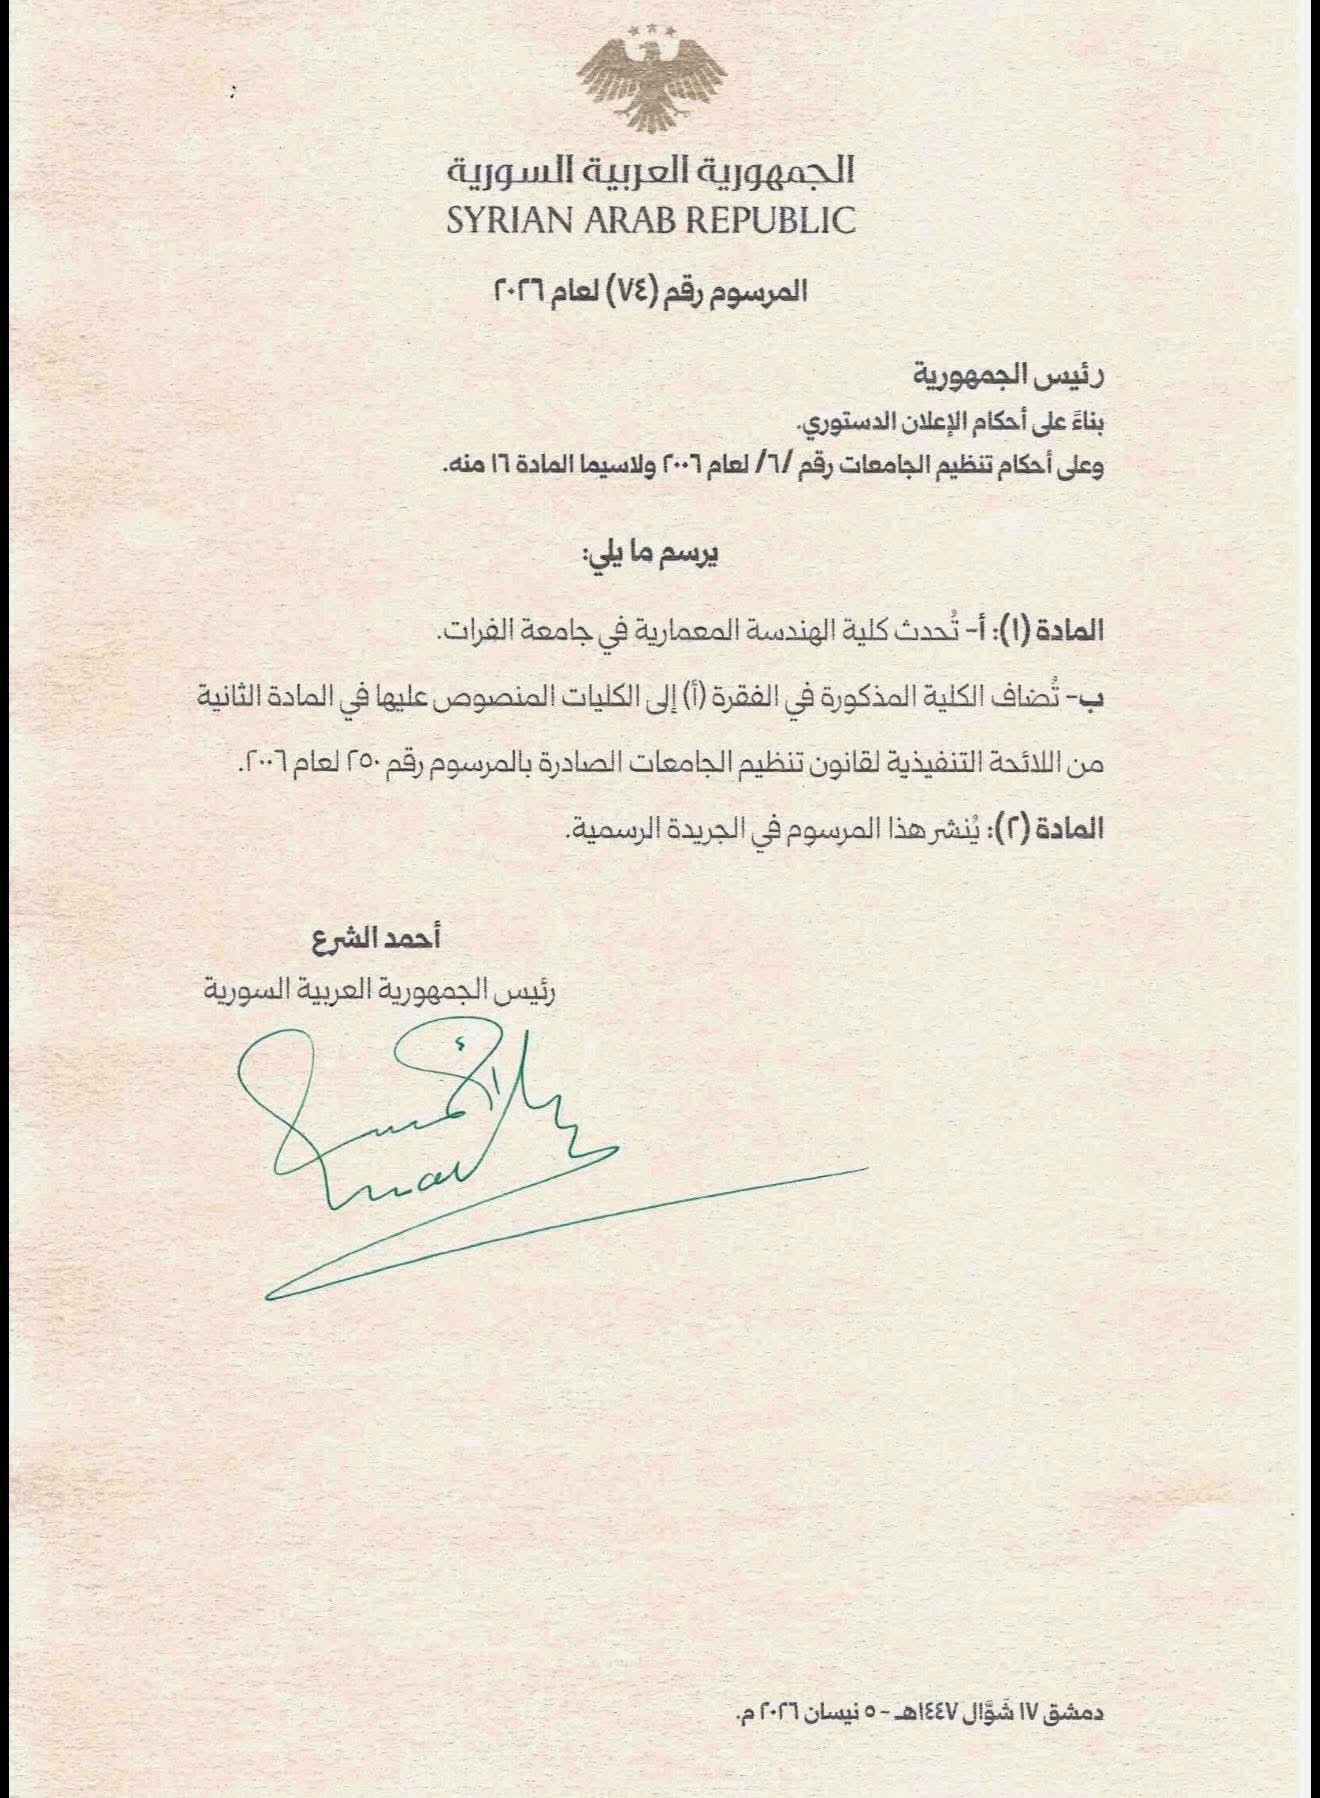 الجمهورية العربية السورية
SYRIAN ARAB REPUBLIC
المرسوم رقم (٧٤) لعام ٢٠٢٦
رئيس الجمهورية
بناءً على أحكام الإعلان الدستوري.
وعلى أحكام تنظيم الجامعات رقم /٦/ لعام ٢٠٠٦ ولاسيما المادة ١٦ منه.
يرسم ما يلي:
المادة (١): أ- تُحدث كلية الهندسة المعمارية في جامعة الفرات.
ب- تُضاف الكلية المذكورة في الفقرة (أ) إلى الكليات المنصوص عليها في المادة الثانية
من اللائحة التنفيذية لقانون تنظيم الجامعات الصادرة بالمرسوم رقم ٢٥٠ لعام ٢٠٠٦.
المادة (٢): يُنشر هذا المرسوم في الجريدة الرسمية.
أحمد الشرع
رئيس الجمهورية العربية السورية
دمشق ١٧ شَوَّال ١٤٤٧هـ - ٥ نيسان ٢٠٢٦ م.